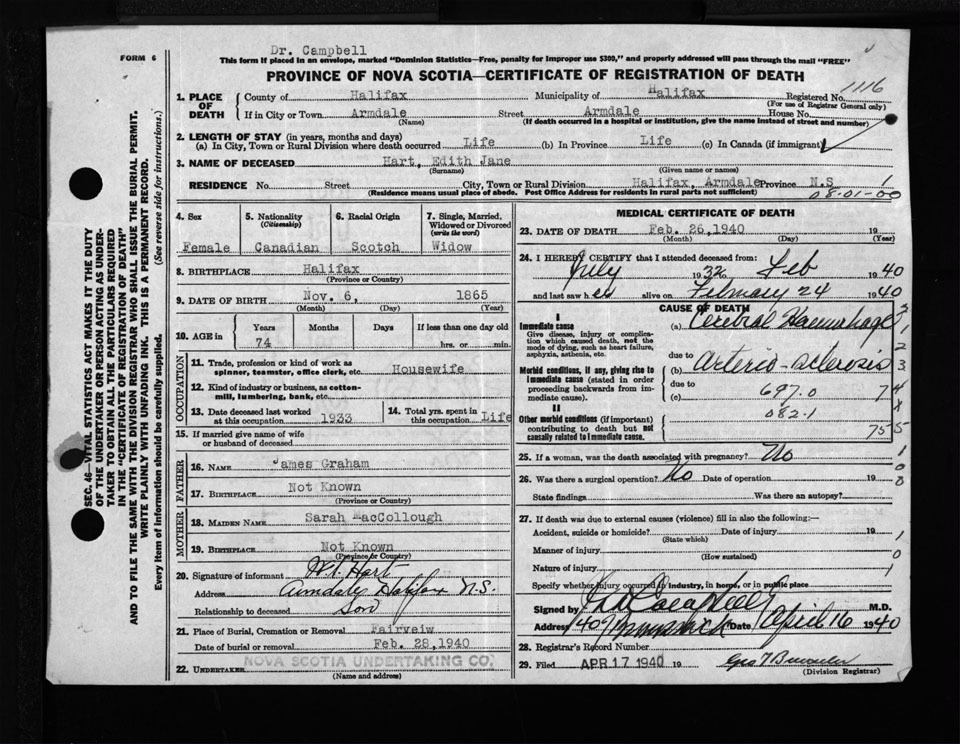 Dr. Campbell
FORM 6
This form if placed in an envelope, marked "Dominion Statistics—Free, penalty for improper use $300," and properly addressed will pass through the mail "FREE"
PROVINCE OF NOVA SCOTIA—CERTIFICATE OF REGISTRATION OF DEATH
1116
1. PLACE OF DEATH County of Halifax Municipality of Halifax Registered No.
(For use of Registrar General only)
If in City or Town Armdale Street Armdale House No.
(Name) (If death occurred in a hospital or institution, give the name instead of street and number)
2. LENGTH OF STAY (in years, months and days)
(a) In City, Town or Rural Division where death occurred Life (b) In Province Life (c) In Canada (if immigrant)
3. NAME OF DECEASED Hart, Edith Jane
(Surname) (Given name or names)
RESIDENCE No. Street City, Town or Rural Division Halifax, Armdale Province N.S 1
(Residence means usual place of abode. Post Office Address for residents in rural parts not sufficient) 08-01-00
4. Sex Female
5. Nationality (Citizenship) Canadian
6. Racial Origin Scotch
7. Single, Married, Widowed or Divorced (write the word) Widow
8. BIRTHPLACE Halifax
(Province or Country)
9. DATE OF BIRTH Nov. 6, 1865
(Month) (Day) (Year)
10. AGE in Years 74 Months Days If less than one day old hrs. or min.
OCCUPATION
11. Trade, profession or kind of work as spinner, teamster, office clerk, etc. Housewife
12. Kind of industry or business, as cotton-mill, lumbering, bank, etc.
13. Date deceased last worked at this occupation 1933
14. Total yrs. spent in this occupation Life
15. If married give name of wife or husband of deceased
FATHER
16. NAME James Graham
17. BIRTHPLACE Not Known
(Province or Country)
MOTHER
18. MAIDEN NAME Sarah MacCollough
19. BIRTHPLACE Not Known
(Province or Country)
20. Signature of informant Hart
Address Armdale Halifax N.S.
Relationship to deceased Son
21. Place of Burial, Cremation or Removal Fairveiw
Date of burial or removal Feb. 28, 1940
22. UNDERTAKER NOVA SCOTIA UNDERTAKING CO.
(Name and address)
MEDICAL CERTIFICATE OF DEATH
23. DATE OF DEATH Feb. 26, 1940 19
(Month) (Day) (Year)
24. I HEREBY CERTIFY that I attended deceased from:
July 1932 Feb 1940
and last saw her alive on February 24 1940
CAUSE OF DEATH
I
Immediate cause
Give disease, injury or complication which caused death, not the mode of dying, such as heart failure, asphyxia, asthenia, etc.
(a) Cerebral Haemorrhage
due to
Morbid conditions, if any, giving rise to immediate cause (stated in order proceeding backwards from immediate cause).
(b) Arterio-sclerosis
due to
(c) 697.0
082.1
II
Other morbid conditions (if important) contributing to death but not causally related to immediate cause.
25. If a woman, was the death associated with pregnancy? No
26. Was there a surgical operation? No Date of operation 19
State findings Was there an autopsy?
27. If death was due to external causes (violence) fill in also the following:—
Accident, suicide or homicide? Date of injury 19
(State which)
Manner of injury
(How sustained)
Nature of injury
Specify whether injury occurred in industry, in home, or in public place
Signed by Campbell M.D.
Address 409 Date April 16 1940
28. Registrar's Record Number
29. Filed APR 17 1940 19
(Division Registrar)
SEC. 46—VITAL STATISTICS ACT MAKES IT THE DUTY
OF THE UNDERTAKER OR PERSON ACTING AS UNDER-
TAKER TO OBTAIN ALL THE PARTICULARS REQUIRED
IN THE "CERTIFICATE OF REGISTRATION OF DEATH"
AND TO FILE THE SAME WITH THE DIVISION REGISTRAR WHO SHALL ISSUE THE BURIAL PERMIT.
WRITE PLAINLY WITH UNFADING INK. THIS IS A PERMANENT RECORD.
Every item of information should be carefully supplied. (See reverse side for instructions.)